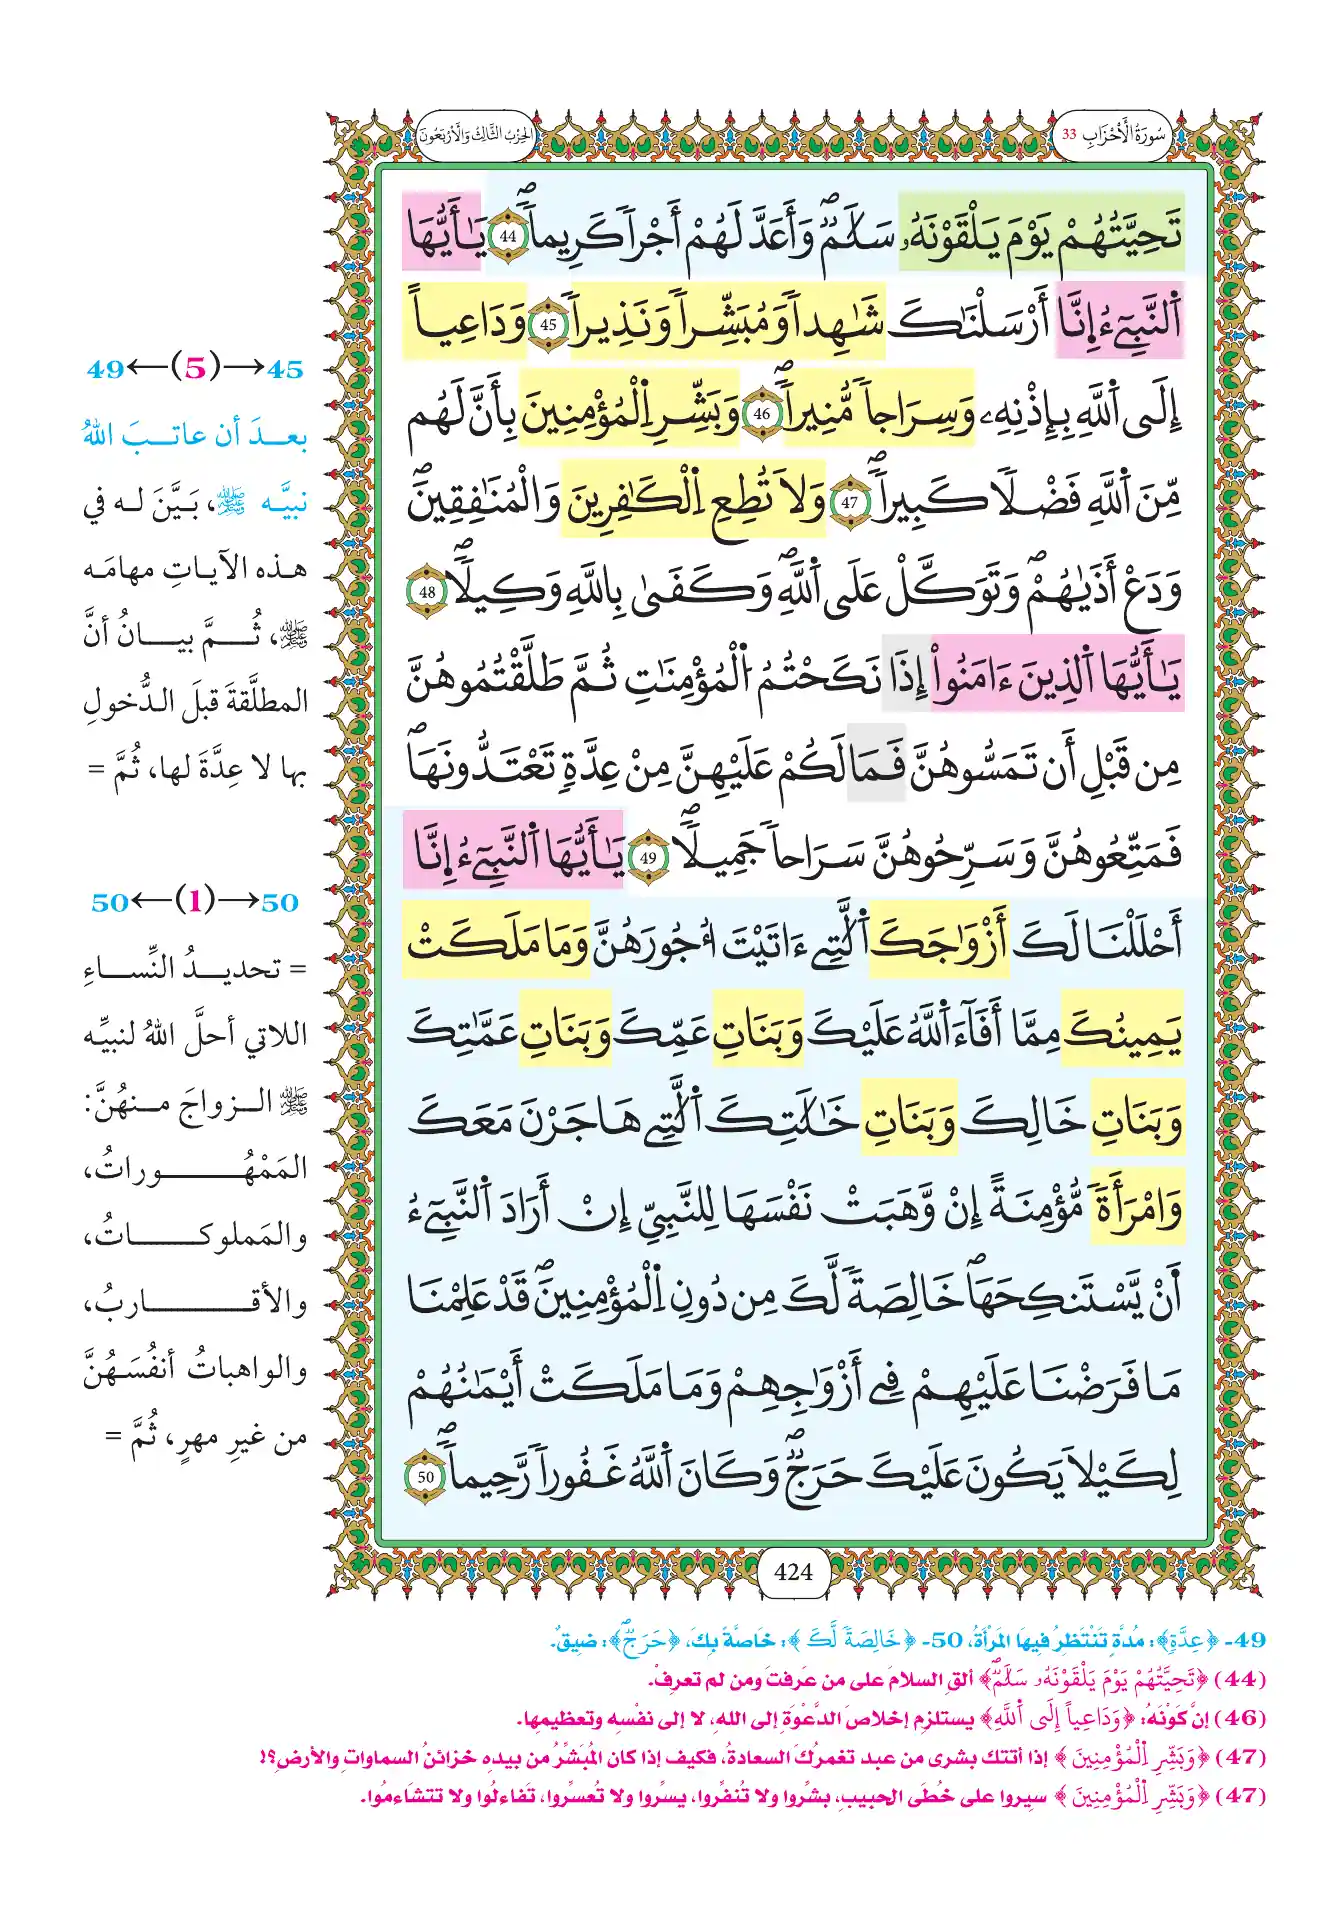 سُورَةُ الْأَحْزَابِ 33
الحِزْبُ الثَّالِثُ وَالْأَرْبَعُونَ
تَحِيَّتُهُمْ يَوْمَ يَلْقَوْنَهُۥ سَلَٰمٌ وَأَعَدَّ لَهُمْ أَجْراٗ كَرِيماٗ 44 يَٰأَيُّهَا
اَ۬لنَّبِيٓءُ اِ۪نَّا أَرْسَلْنَٰكَ شَٰهِداٗ وَمُبَشِّراٗ وَنَذِيراٗ 45 وَدَاعِياً
إِلَى اَ۬للَّهِ بِإِذْنِهِۦ وَسِرَاجاٗ مُّنِيراٗ 46 وَبَشِّرِ اِ۬لْمُؤْمِنِينَ بِأَنَّ لَهُم
مِّنَ اَ۬للَّهِ فَضْلاٗ كَبِيراٗ 47 وَلَا تُطِعِ اِ۬لْكَٰفِرِينَ وَالْمُنَٰفِقِينَ
وَدَعْ أَذَيٰهُمْ وَتَوَكَّلْ عَلَى اَ۬للَّهِ وَكَفَىٰ بِاللَّهِ وَكِيلاٗ 48
يَٰأَيُّهَا اَ۬لذِينَ ءَامَنُواْ إِذَا نَكَحْتُمُ اُ۬لْمُؤْمِنَٰتِ ثُمَّ طَلَّقْتُمُوهُنَّ
مِن قَبْلِ أَن تَمَسُّوهُنَّ فَمَا لَكُمْ عَلَيْهِنَّ مِنْ عِدَّةٖ تَعْتَدُّونَهَا
فَمَتِّعُوهُنَّ وَسَرِّحُوهُنَّ سَرَاحاٗ جَمِيلاٗ 49 يَٰأَيُّهَا اَ۬لنَّبِيٓءُ اِ۪نَّا
أَحْلَلْنَا لَكَ أَزْوَٰجَكَ اَ۬لَّٰتِےٓ ءَاتَيْتَ أُجُورَهُنَّ وَمَا مَلَكَتْ
يَمِينُكَ مِمَّا أَفَآءَ اَ۬للَّهُ عَلَيْكَ وَبَنَاتِ عَمِّكَ وَبَنَاتِ عَمَّٰتِكَ
وَبَنَاتِ خَالِكَ وَبَنَاتِ خَٰلَٰتِكَ اَ۬لَّٰتِے هَاجَرْنَ مَعَكَ
وَامْرَأَةٗ مُّؤْمِنَةً إِنْ وَّهَبَتْ نَفْسَهَا لِلنَّبِيِّ إِنْ أَرَادَ اَ۬لنَّبِيٓءُ
اَ۪نْ يَّسْتَنكِحَهَا خَالِصَةٗ لَّكَ مِن دُونِ اِ۬لْمُؤْمِنِينَ قَدْ عَلِمْنَا
مَا فَرَضْنَا عَلَيْهِمْ فِے أَزْوَٰجِهِمْ وَمَا مَلَكَتْ أَيْمَٰنُهُمْ
لِكَيْلَا يَكُونَ عَلَيْكَ حَرَجٌ وَكَانَ اَ۬للَّهُ غَفُوراٗ رَّحِيماٗ 50
424
45→(5)←49
بعدَ أن عاتبَ اللهُ
نبيَّه ﷺ، بَيَّنَ له في
هذه الآياتِ مهامَه
ﷺ، ثُمَّ بيانُ أنَّ
المطلَّقةَ قبلَ الدُّخولِ
بها لا عِدَّةَ لها، ثُمَّ =
50→(1)←50
= تحديدُ النِّساءِ
اللاتي أحلَّ اللهُ لنبيِّه
ﷺ الزواجَ منهُنَّ:
المَمْهُوراتُ،
والمَملوكاتُ،
والأقاربُ،
والواهباتُ أنفُسَهُنَّ
من غيرِ مهرٍ، ثُمَّ =
49- ﴿عِدَّةٖ﴾: مُدَّةٍ تَنْتَظِرُ فِيهَا المَرْأَةُ، 50- ﴿خَالِصَةٗ لَّكَ﴾: خَاصَّةً بِكَ، ﴿حَرَجٌ﴾: ضيقٌ.
(44) ﴿تَحِيَّتُهُمْ يَوْمَ يَلْقَوْنَهُۥ سَلَٰمٌ﴾ ألقِ السلامَ على من عَرفتَ ومن لم تعرِفْ.
(46) إنَّ كَوْنَهُ: ﴿وَدَاعِياً إِلَى اَ۬للَّهِ﴾ يستلزِم إخلاصَ الدَّعْوَةِ إلى اللهِ، لا إلى نفْسِه وتعظيمِها.
(47) ﴿وَبَشِّرِ اِ۬لْمُؤْمِنِينَ﴾ إذا أتتك بشرى من عبد تغمرُكَ السعادةُ، فكيف إذا كان المُبَشِّرُ من بيدِه خزائنُ السماواتِ والأرضِ؟!
(47) ﴿وَبَشِّرِ اِ۬لْمُؤْمِنِينَ﴾ سِيروا على خُطَى الحبيبِ، بشِّروا ولا تُنفِّروا، يسِّروا ولا تُعسِّروا، تَفاءلُوا ولا تتشَاءمُوا.